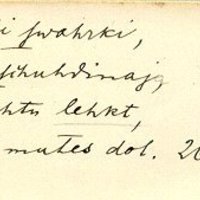 i swahrki,
schuhdinaja
htu lehkt,
mutes dot. 20